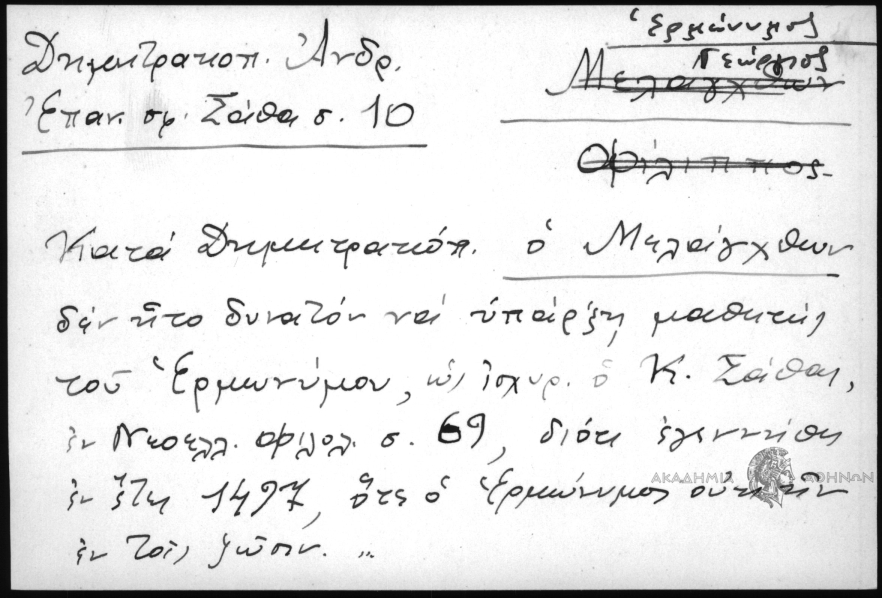 Δημητρακοπ. Ἀνδρ.
Ἐπαν. σφ. Σάθα σ. 10
Ἑρμώνυμος
Γεώργιος
Μελάγχθων
Φίλιππος
Κατά Δημητρακόπ. ὁ Μελάγχθων
δέν ἦτο δυνατόν νά ὑπάρξῃ μαθητής
τοῦ Ἑρμωνύμου, ὡς ἰσχυρ. ὁ Κ. Σάθας,
ἐν Νεοελλ. Φιλολ. σ. 69, διότι ἐγεννήθη
ἐν ἔτει 1497, ὅτε ὁ Ἑρμώνυμος οὐκ ἦν
ἐν τοῖς ζῶσιν. ...
ΑΚΑΔΗΜΙΑ ΑΘΗΝΩΝ